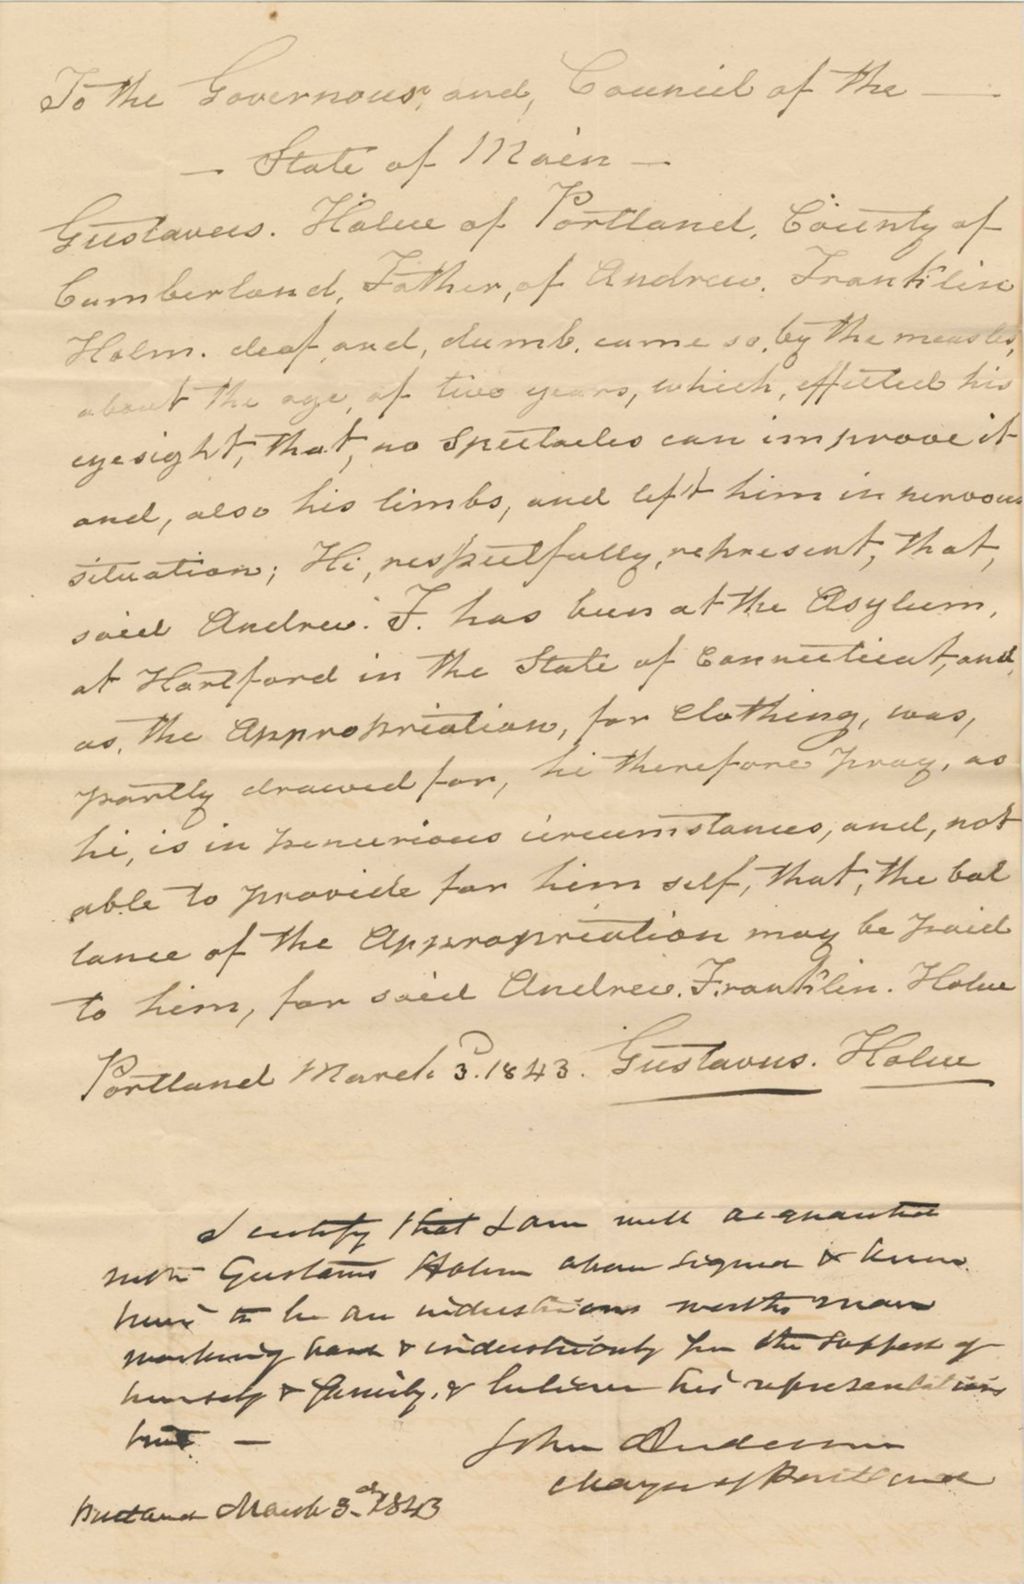 To the Governour, and, Council of the —
— State of Main —
Gustavus. Holm of Portland, County of
Cumberland, Father, of Andrew. Franklin
Holm. deaf and, dumb, came so, by the measles,
about the age, of two years, which, effected his
eyesight, that, no Spectacles can improve it
and, also his limbs, and left him in nervous
situation; He, respectfully, represent, that,
said Andrew. F. has been at the Asylum,
at Hartford in the State of Connecticut, and,
as, the Appropriation, for Clothing, was,
partly drawed for, he therefore pray, as
he, is in penurious circumstances, and, not
able to provide for him self, that, the bal
lance of the Appropriation may be paid
to him, for said Andrew. Franklin. Holm
Portland March 3d. 1843. Gustavus. Holm
I certify that I am well acquainted
with Gustavus Holm above signed & know
him to be an industrious worthy man
working hard & industriously for the support of
himself & family, & believe his representations
true —
John Anderson
Mayor of Portland
Portland March 3d. 1843